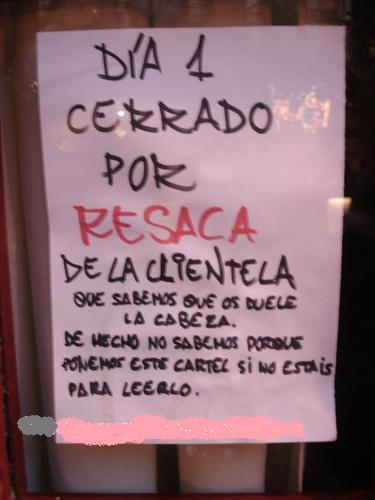 DÍA 1
CERRADO
POR
RESACA
DE LA CLIENTELA
QUE SABEMOS QUE OS DUELE
LA CABEZA.
DE HECHO NO SABEMOS PORQUE
PONEMOS ESTE CARTEL SI NO ESTAIS
PARA LEERLO.